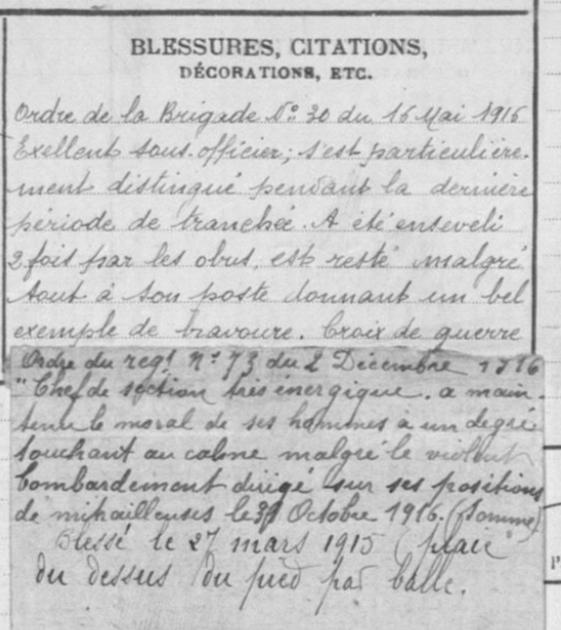 BLESSURES, CITATIONS,
DÉCORATIONS, ETC.
Ordre de la Brigade No 30 du 16 Mai 1916
Exellent sous-officier; s'est particulière-
ment distingué pendant la dernière
période de tranchée. A été enseveli
2 fois par les obus, est resté malgré
tout à son poste donnant un bel
exemple de bravoure. Croix de guerre
Ordre du regt No 73 du 2 Décembre 1916
"Chef de section très énergique. a main-
tenu le moral de ses hommes à un degré
touchant au calme malgré le violent
bombardement dirigé sur ses positions
de mitrailleuses le 31 Octobre 1916. (Somme)
Blessé le 27 mars 1915 (plaie
du dessus du pied par balle.